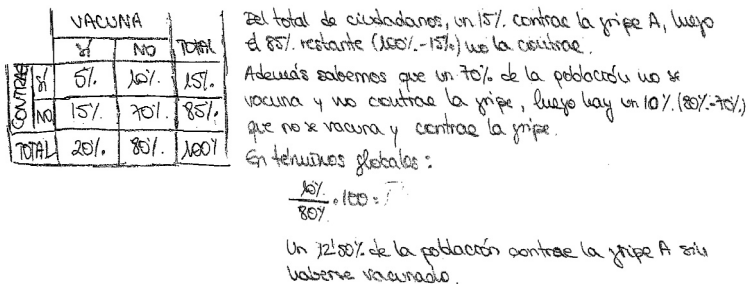 VACUNA
SÍ NO TOTAL
CONTRAE
SÍ 5% 10% 15%
NO 15% 70% 85%
TOTAL 20% 80% 100%
Del total de ciudadanos, un 15% contrae la gripe A, luego
el 85% restante (100%-15%) no la contrae.
Además sabemos que un 70% de la población no se
vacuna y no contrae la gripe, luego hay un 10% (80%-70%)
que no se vacuna y contrae la gripe.
En términos globales:
10%
80%
· 100 =
Un 12'50% de la población contrae la gripe A sin
haberse vacunado.